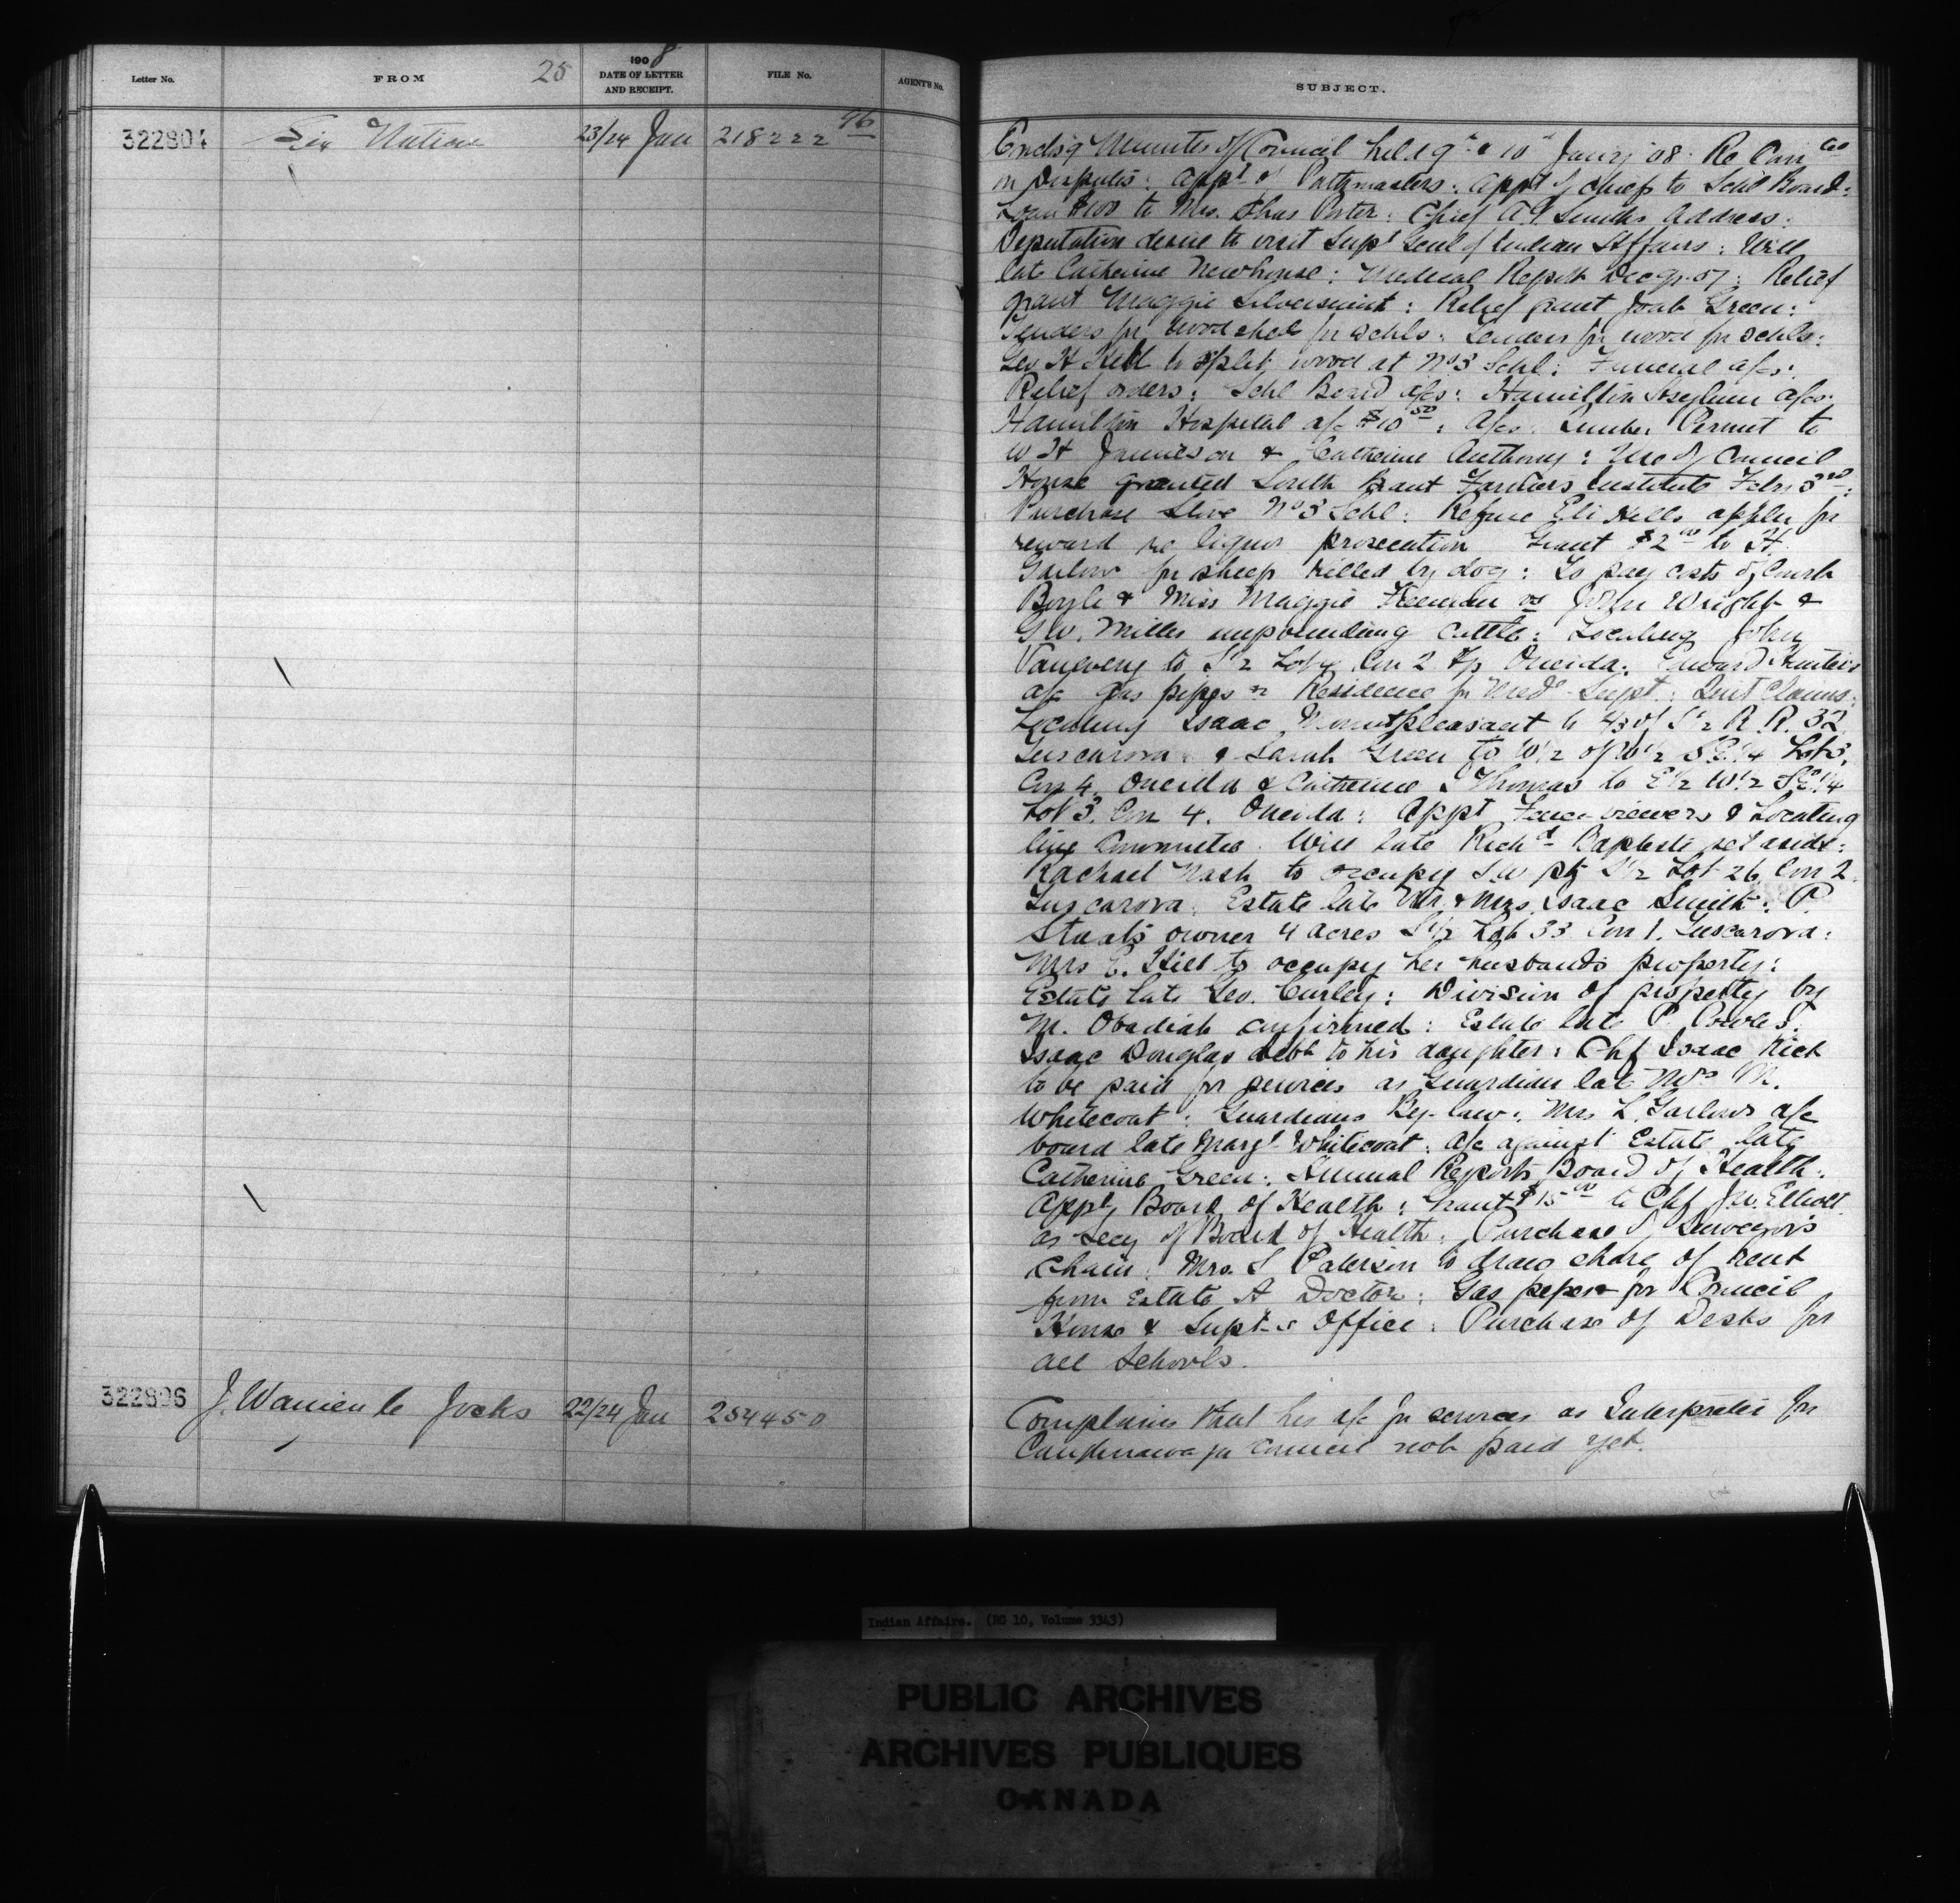 Letter No. FROM 25 1908 DATE OF LETTER AND RECEIPT. FILE No. AGENT'S No.
322804 Six Nations 23/24 Jan 218222 96
322806 J. Wanienle Jocks 22/24 Jan 254450
SUBJECT.
Encls'g Minutes of Council held 9th & 10th Jany '08: Re
in Disputes: Appt of Pathmasters: Appt of Chiefs to Schl Board:
Loan $100 to Mrs. Chas Porter: Chief A.G. Smith's Address:
Deputation desire to visit Supt Genl of Indian Affairs: Will
late Catherine Newhouse: Medical Report Decr 07: Relief
grant Maggie Silversmith: Relief grant Joab Green:
Tenders for wood shed for schls: Tenders for wood for schls:
Geo H Hill to split wood at No 3 Schl: Funeral a/cs:
Relief orders: Schl Board a/cs: Hamilton Asylum a/cs:
Hamilton Hospital a/c $10.50: A/cs: Lumber Permit to
W H Jamieson & Catherine Anthony: Use of Council
House granted South Brant Farmers Institute Feby 3rd:
Purchase Stove No 3 Schl: Refuse Eli Hills appln for
reward re liquor prosecution Grant $2.00 to H.
Garlow for sheep killed by dog: To pay costs of Court
Boyle & Miss Maggie Freeman vs John Wright &
G.W. Miller impounding cattle: Locating John
Vanevery to S1/2 Lot 4 Con 2 Tp Oneida: Edward
a/c gas pipes Residence for Medl Supt: Quit Claims:
Locating Isaac Mountpleasant to 4/3 of S1/2 R.R. 32
Tuscarora & Sarah Green to W1/2 of W1/2 S.E.1/4 Lot 3,
Con 4. Oneida & Catherine Thomas to E1/2 W1/2 S.E.1/4
Lot 3. Con 4. Oneida: Appt Fence-viewers & Locating
line Committee: Will late Richd Baptiste set aside:
Rachael Nash to occupy S.W pt S1/2 Lot 26 Con 2
Tuscarora: Estate late Mr. & Mrs Isaac Smith: P.
Staats owner 4 acres S1/2 Lot 33 Con 1. Tuscarora:
Mrs E. Hill to occupy her husbands property:
Estate late Geo. Curley: Division of property by
M. Obadiah confirmed: Estate late P. Powles:
Isaac Douglas debt to his daughter: Chf Isaac Hill
to be paid for services as Guardian late Mrs M.
Whitecoat: Guardians By-law: Mrs L. Garlows a/c
board late Margt Whitecoat: a/c against Estate late
Catherine Green: Annual Reports Board of Health:
Appt Board of Health: Grant $15.00 to Chf J.W. Elliott
as Secy of Board of Health: Purchase of Surveyor's
Chain: Mrs. S Paterson to draw share of rent
from Estate A Doctor: Gas pipes for Council
House & Supt-s Office: Purchase of Desks for
all Schools.
Complains that his a/c for services as Interpreter for
Caughnawaga council not paid yet.
Indian Affairs. (RG 10, Volume 3343)
PUBLIC ARCHIVES
ARCHIVES PUBLIQUES
CANADA